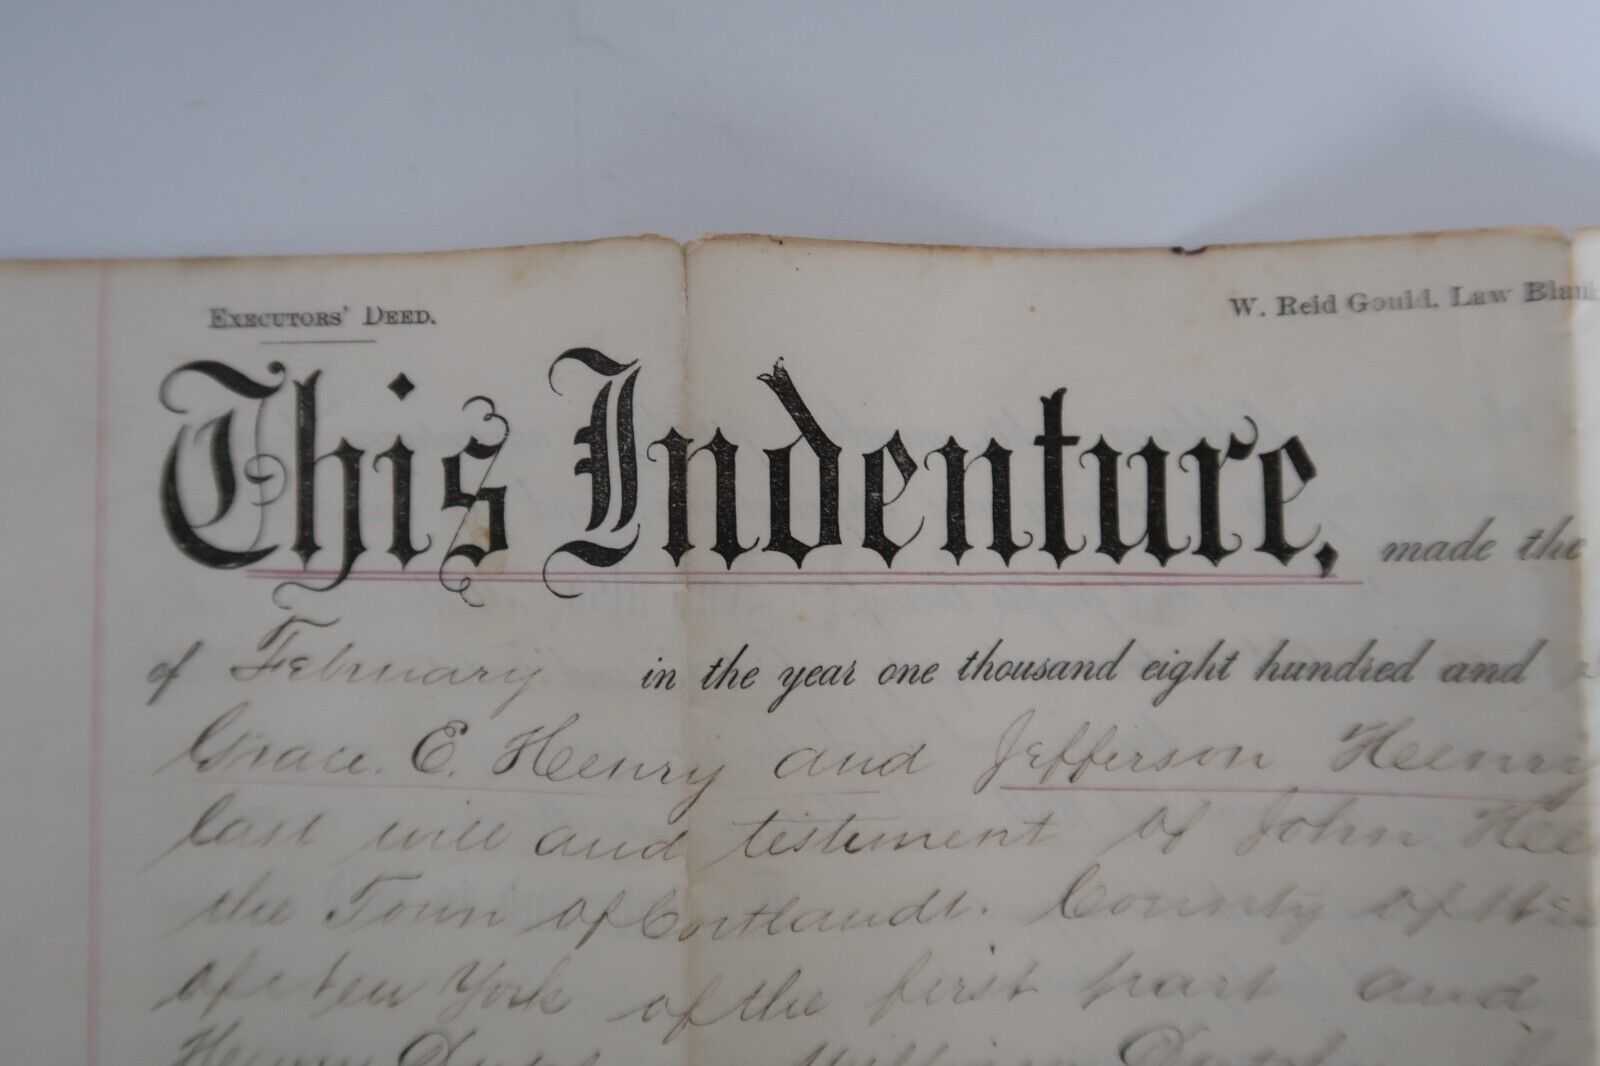 EXECUTORS' DEED.
W. Reid Gould. Law Blank
This Indenture, made the
of February in the year one thousand eight hundred and
Grace. E. Henry and Jefferson Henry
last will and testement of John
the Town of Cortlandt. County of
of New York of the first part and